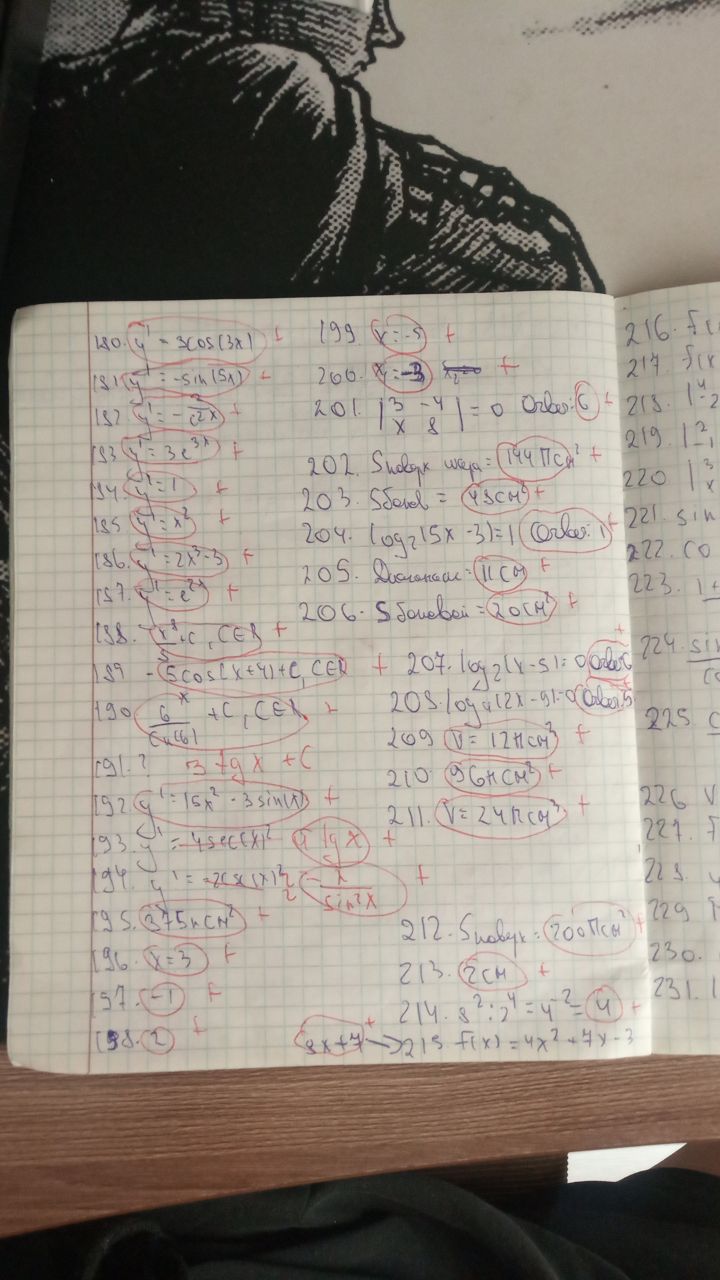 180. y' = 3cos(3x) +
181. y' = -sin(5x) +
182 y' = - 3/c²x +
183 y' = 3e^3x +
184. y' = 1 +
185 y' = x² +
186. y' = 2x³-3 +
187. y' = e^2x +
188. x⁸/8 + C, C∈R +
189 - 5cos(x+4)+C, C∈R +
190 6^x/ln(6) + C, C∈R +
191. ? 3 tg x + C
192. y' = 15x² - 3sin(x) +
193. y' = -4sec(x)² 4 tg x +
194. y' = -2csc(x)² - x/sin²x +
195. 375π см² +
196. x=3 +
197. -1 +
198. 2 +
199. x=-5 +
200. x=-3 +
201. |3 -4| = 0 Ответ: 6 +
x 8
202. Sповрх шара = 144П см² +
203. Sбоков = 48 см² +
204. log₂(5x-3)=1 Ответ: 1 +
205. Диагональ = 11 см +
206. Sбоковой = 20 см² +
207. log₂(x-5)=0 Ответ: 6 +
208. log₄(2x-9)=0 Ответ: 5 +
209 V = 12π см³ +
210. 96π см³ +
211. V = 24π см³ +
212. Sповрх = 200П см² +
213. 2 см +
214. 8²:2⁴ = 4^-2 = 4 +
8x+7 + → 215. f(x) = 4x² + 7x - 3
216. f(x
217. f(x
218. |4
-2
219. |2 1
-1
220 |3
x
221. sin
222. co
223. 1+
224. sin
co
225 c
226 V
227. F
228.
229
230.
231.